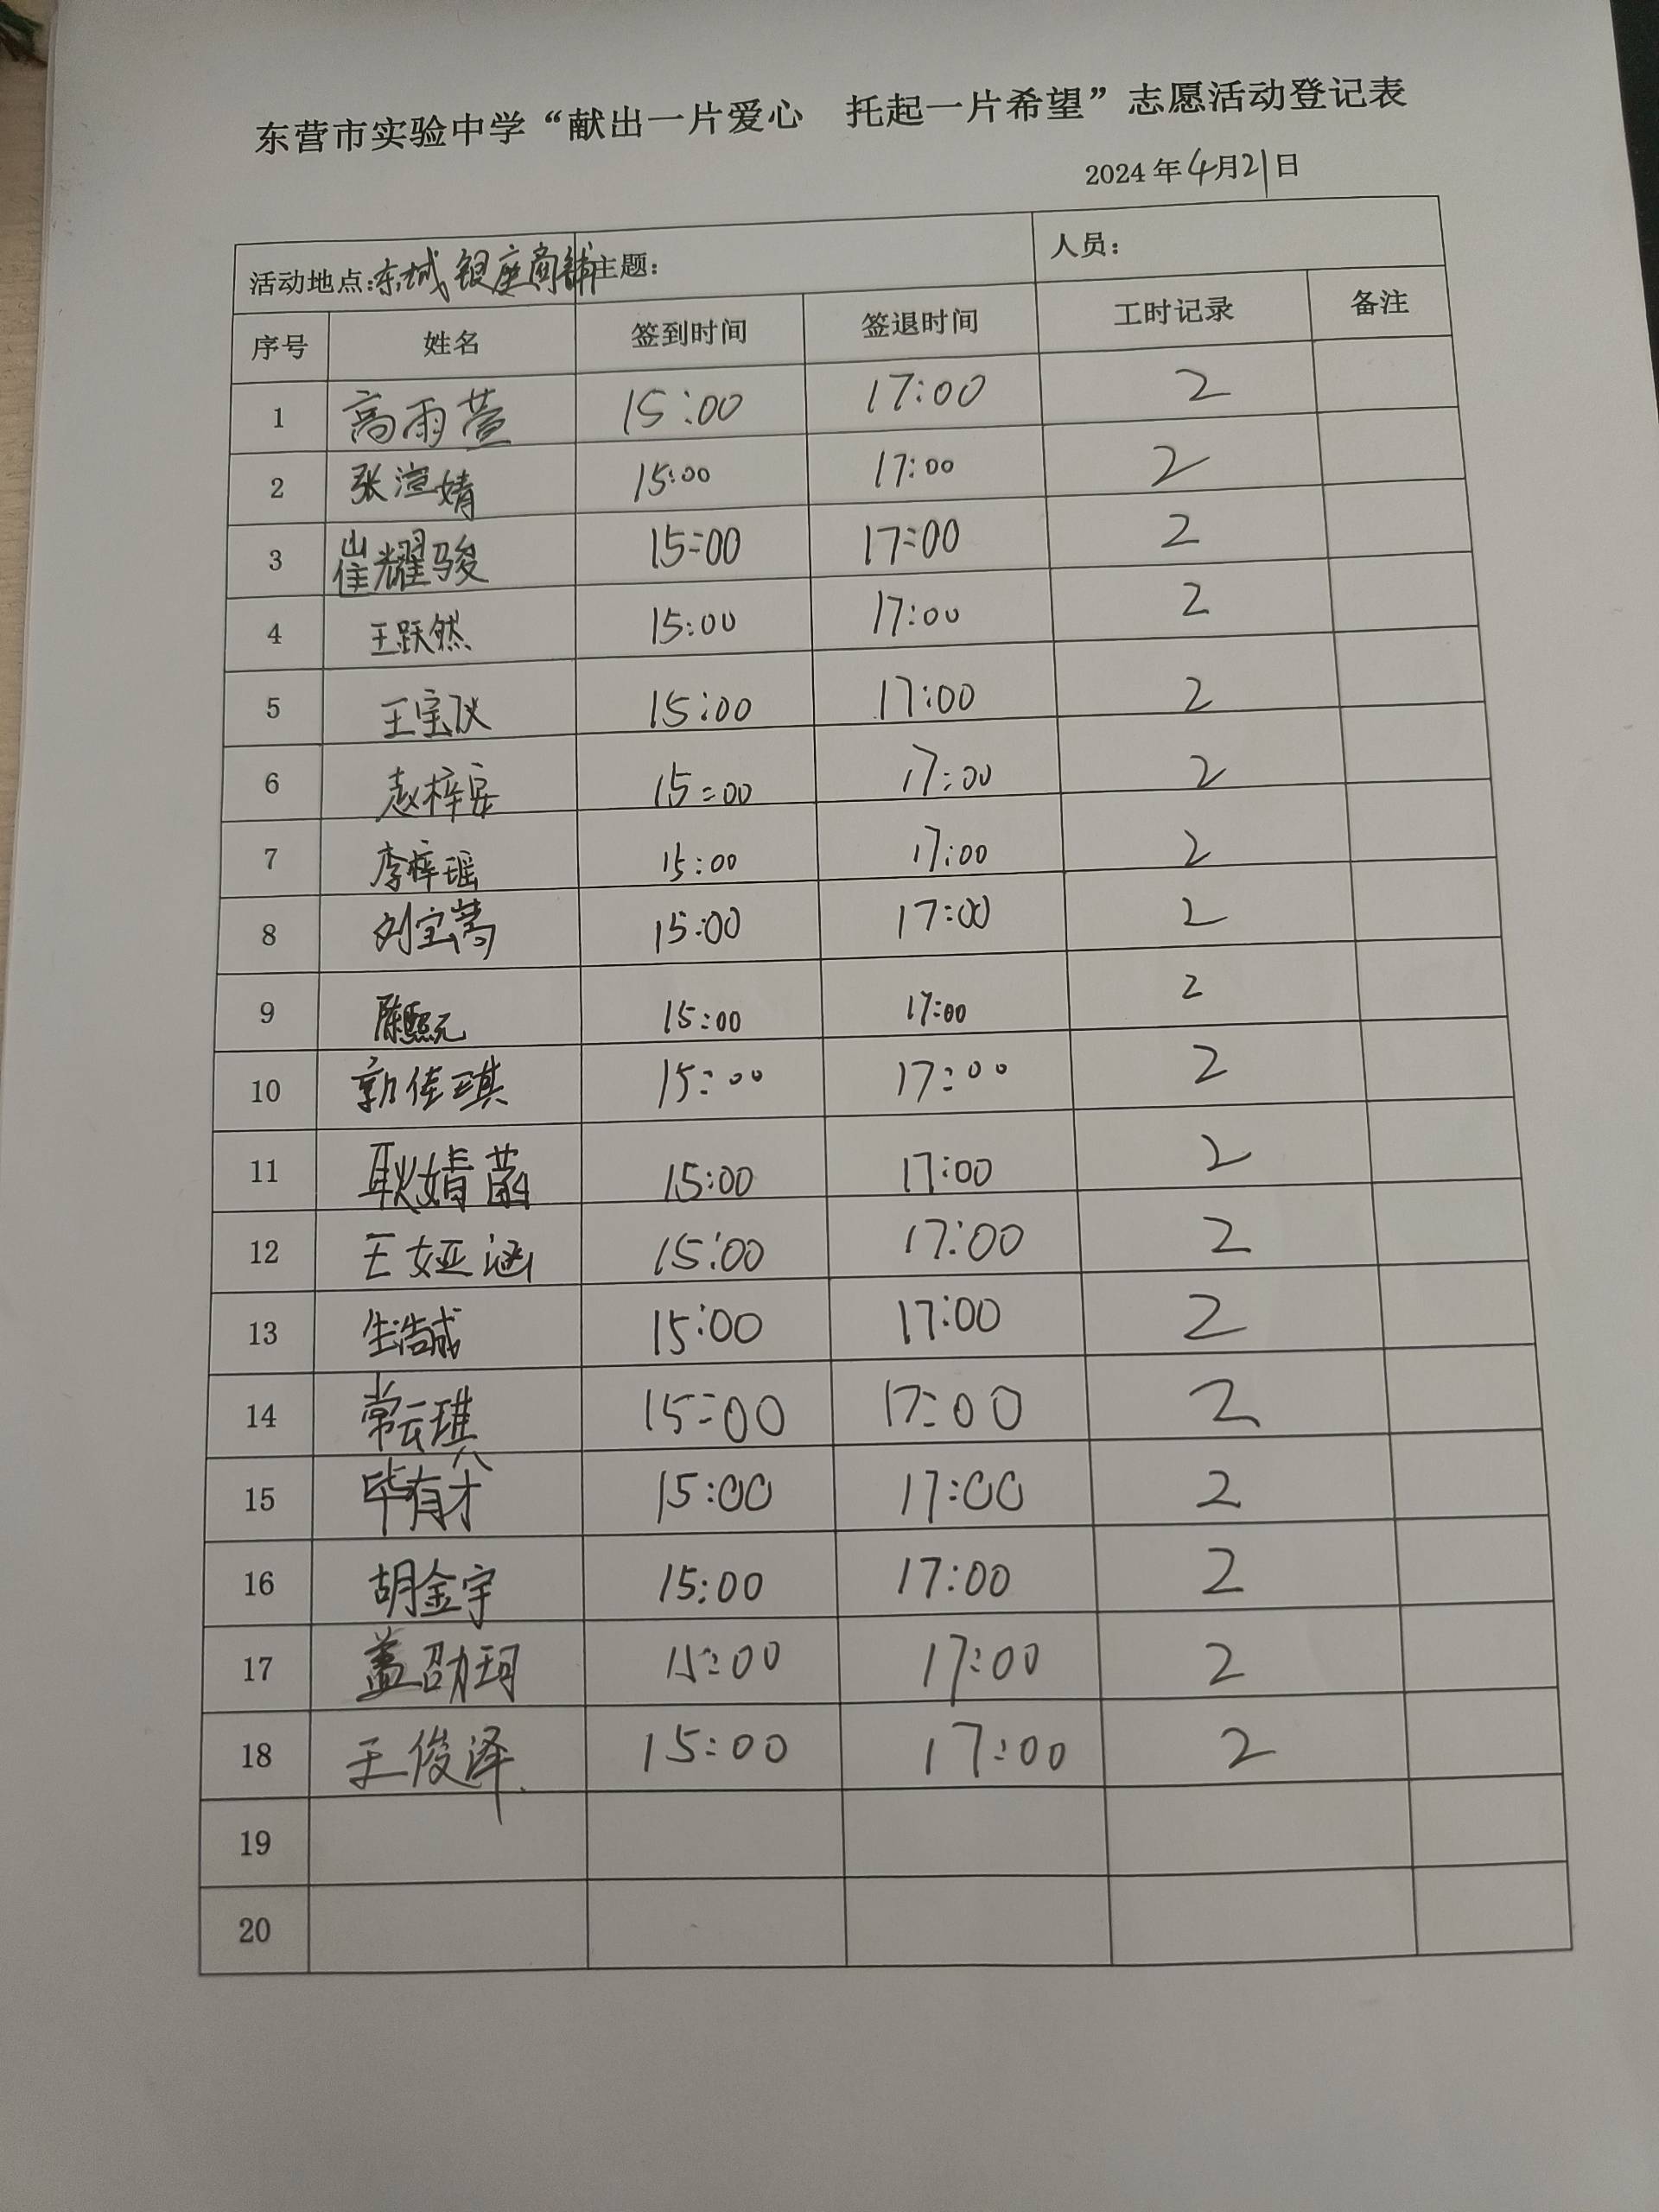 东营市实验中学“献出一片爱心 托起一片希望”志愿活动登记表
2024年4月21日
活动地点:东城银座商铺 主题: 人员:
序号 姓名 签到时间 签退时间 工时记录 备注
1 高雨萱 15:00 17:00 2
2 张渲婧 15:00 17:00 2
3 崔耀骏 15:00 17:00 2
4 王跃然 15:00 17:00 2
5 王宝仪 15:00 17:00 2
6 赵梓安 15:00 17:00 2
7 李梓瑶 15:00 17:00 2
8 刘宝蒿 15:00 17:00 2
9 陈熙元 15:00 17:00 2
10 郭佳琪 15:00 17:00 2
11 耿婧菡 15:00 17:00 2
12 王娅涵 15:00 17:00 2
13 生浩成 15:00 17:00 2
14 常云琪 15:00 17:00 2
15 毕有才 15:00 17:00 2
16 胡金宇 15:00 17:00 2
17 盖劭珂 15:00 17:00 2
18 王俊泽 15:00 17:00 2
19
20